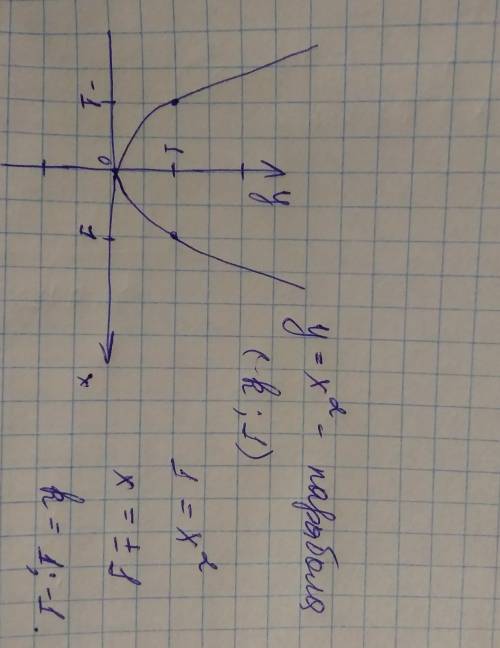 y
1
-1 0 1 x
y = x² - парабола
(k ; 1)
1 = x²
x = ±1
k = 1; -1.